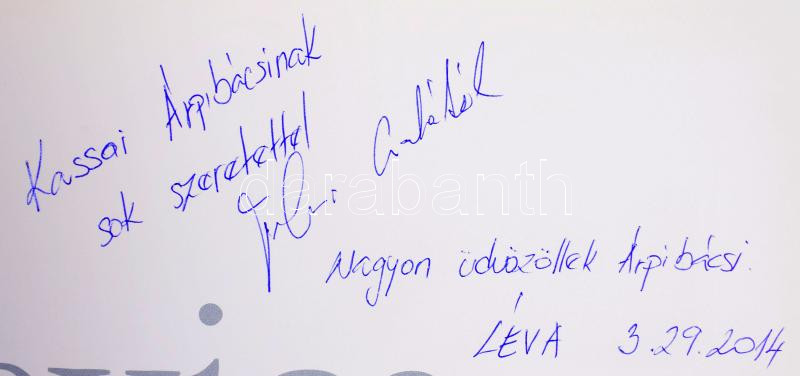 Kassai Árpibácsinak
sok szeretettel
Családtól
Nagyon üdvözöllek Árpi bácsi.
LÉVA 3.29.2014
darabanth